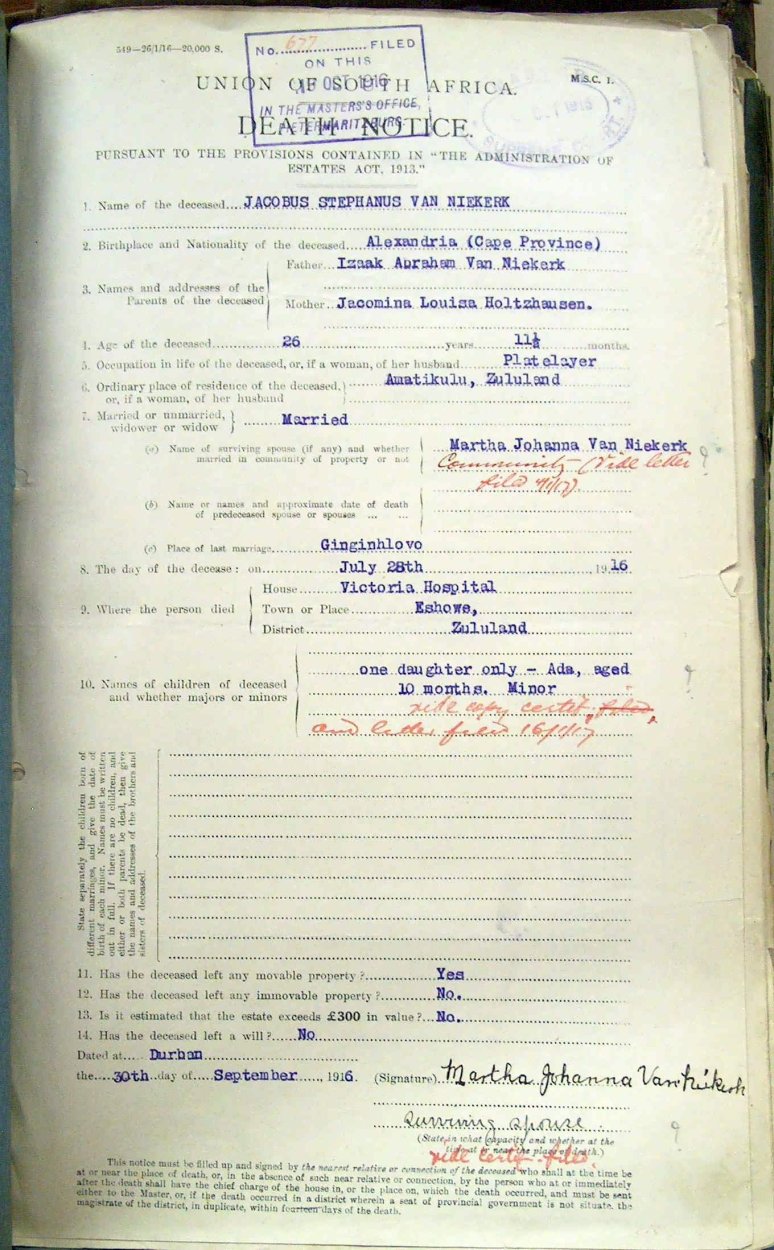 549—26/1/16—20,000 S.
No. 677 FILED
ON THIS
OCT 1916
IN THE MASTERS'S OFFICE,
PIETERMARITZBURG.
M.S.C. 1.
UNION OF SOUTH AFRICA.
DEATH NOTICE.
PURSUANT TO THE PROVISIONS CONTAINED IN "THE ADMINISTRATION OF
ESTATES ACT, 1913."
1. Name of the deceased JACOBUS STEPHANUS VAN NIEKERK
2. Birthplace and Nationality of the deceased Alexandria (Cape Province)
3. Names and addresses of the Parents of the deceased
Father Izaak Abraham Van Niekerk
Mother Jacomina Louisa Holtzhausen.
4. Age of the deceased 26 years 11½ months.
5. Occupation in life of the deceased, or, if a woman, of her husband Platelayer
6. Ordinary place of residence of the deceased, or, if a woman, of her husband Amatikulu, Zululand
7. Married or unmarried, widower or widow Married
(a) Name of surviving spouse (if any) and whether married in community of property or not
Martha Johanna Van Niekerk ?
Community (Vide letter
filed
(b) Name or names and approximate date of death of predeceased spouse or spouses ... ...
(c) Place of last marriage Ginginhlovo
8. The day of the decease: on July 28th 1916
9. Where the person died
House Victoria Hospital
Town or Place Eshowe,
District Zululand
10. Names of children of deceased and whether majors or minors
one daughter only - Ada, aged ?
10 months. Minor
vide copy certif. filed,
and letter filed 16/1/17
State separately the children born of
different marriages, and give the date of
birth of each minor. Names must be written
out in full. If there are no children, and
either or both parents be dead, then give
the names and addresses of the brothers and
sisters of deceased.
11. Has the deceased left any movable property? Yes
12. Has the deceased left any immovable property? No.
13. Is it estimated that the estate exceeds £300 in value? No.
14. Has the deceased left a will? No
Dated at Durban
the 30th day of September, 1916. (Signature) Martha Johanna Van Niekerk
surviving spouse.
(State in what capacity and whether at the
time at or near the place of death.) ?
vide certif. filed.
This notice must be filled up and signed by the nearest relative or connection of the deceased who shall at the time be
at or near the place of death, or, in the absence of such near relative or connection, by the person who at or immediately
after the death shall have the chief charge of the house in, or the place on, which the death occurred, and must be sent
either to the Master, or, if the death occurred in a district wherein a seat of provincial government is not situate, the
magistrate of the district, in duplicate, within fourteen days of the death.